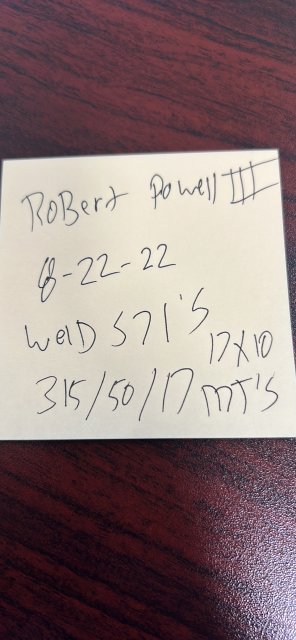 Robert Powell III
8-22-22
WelD S71's
17x10
315/50/17 MT's